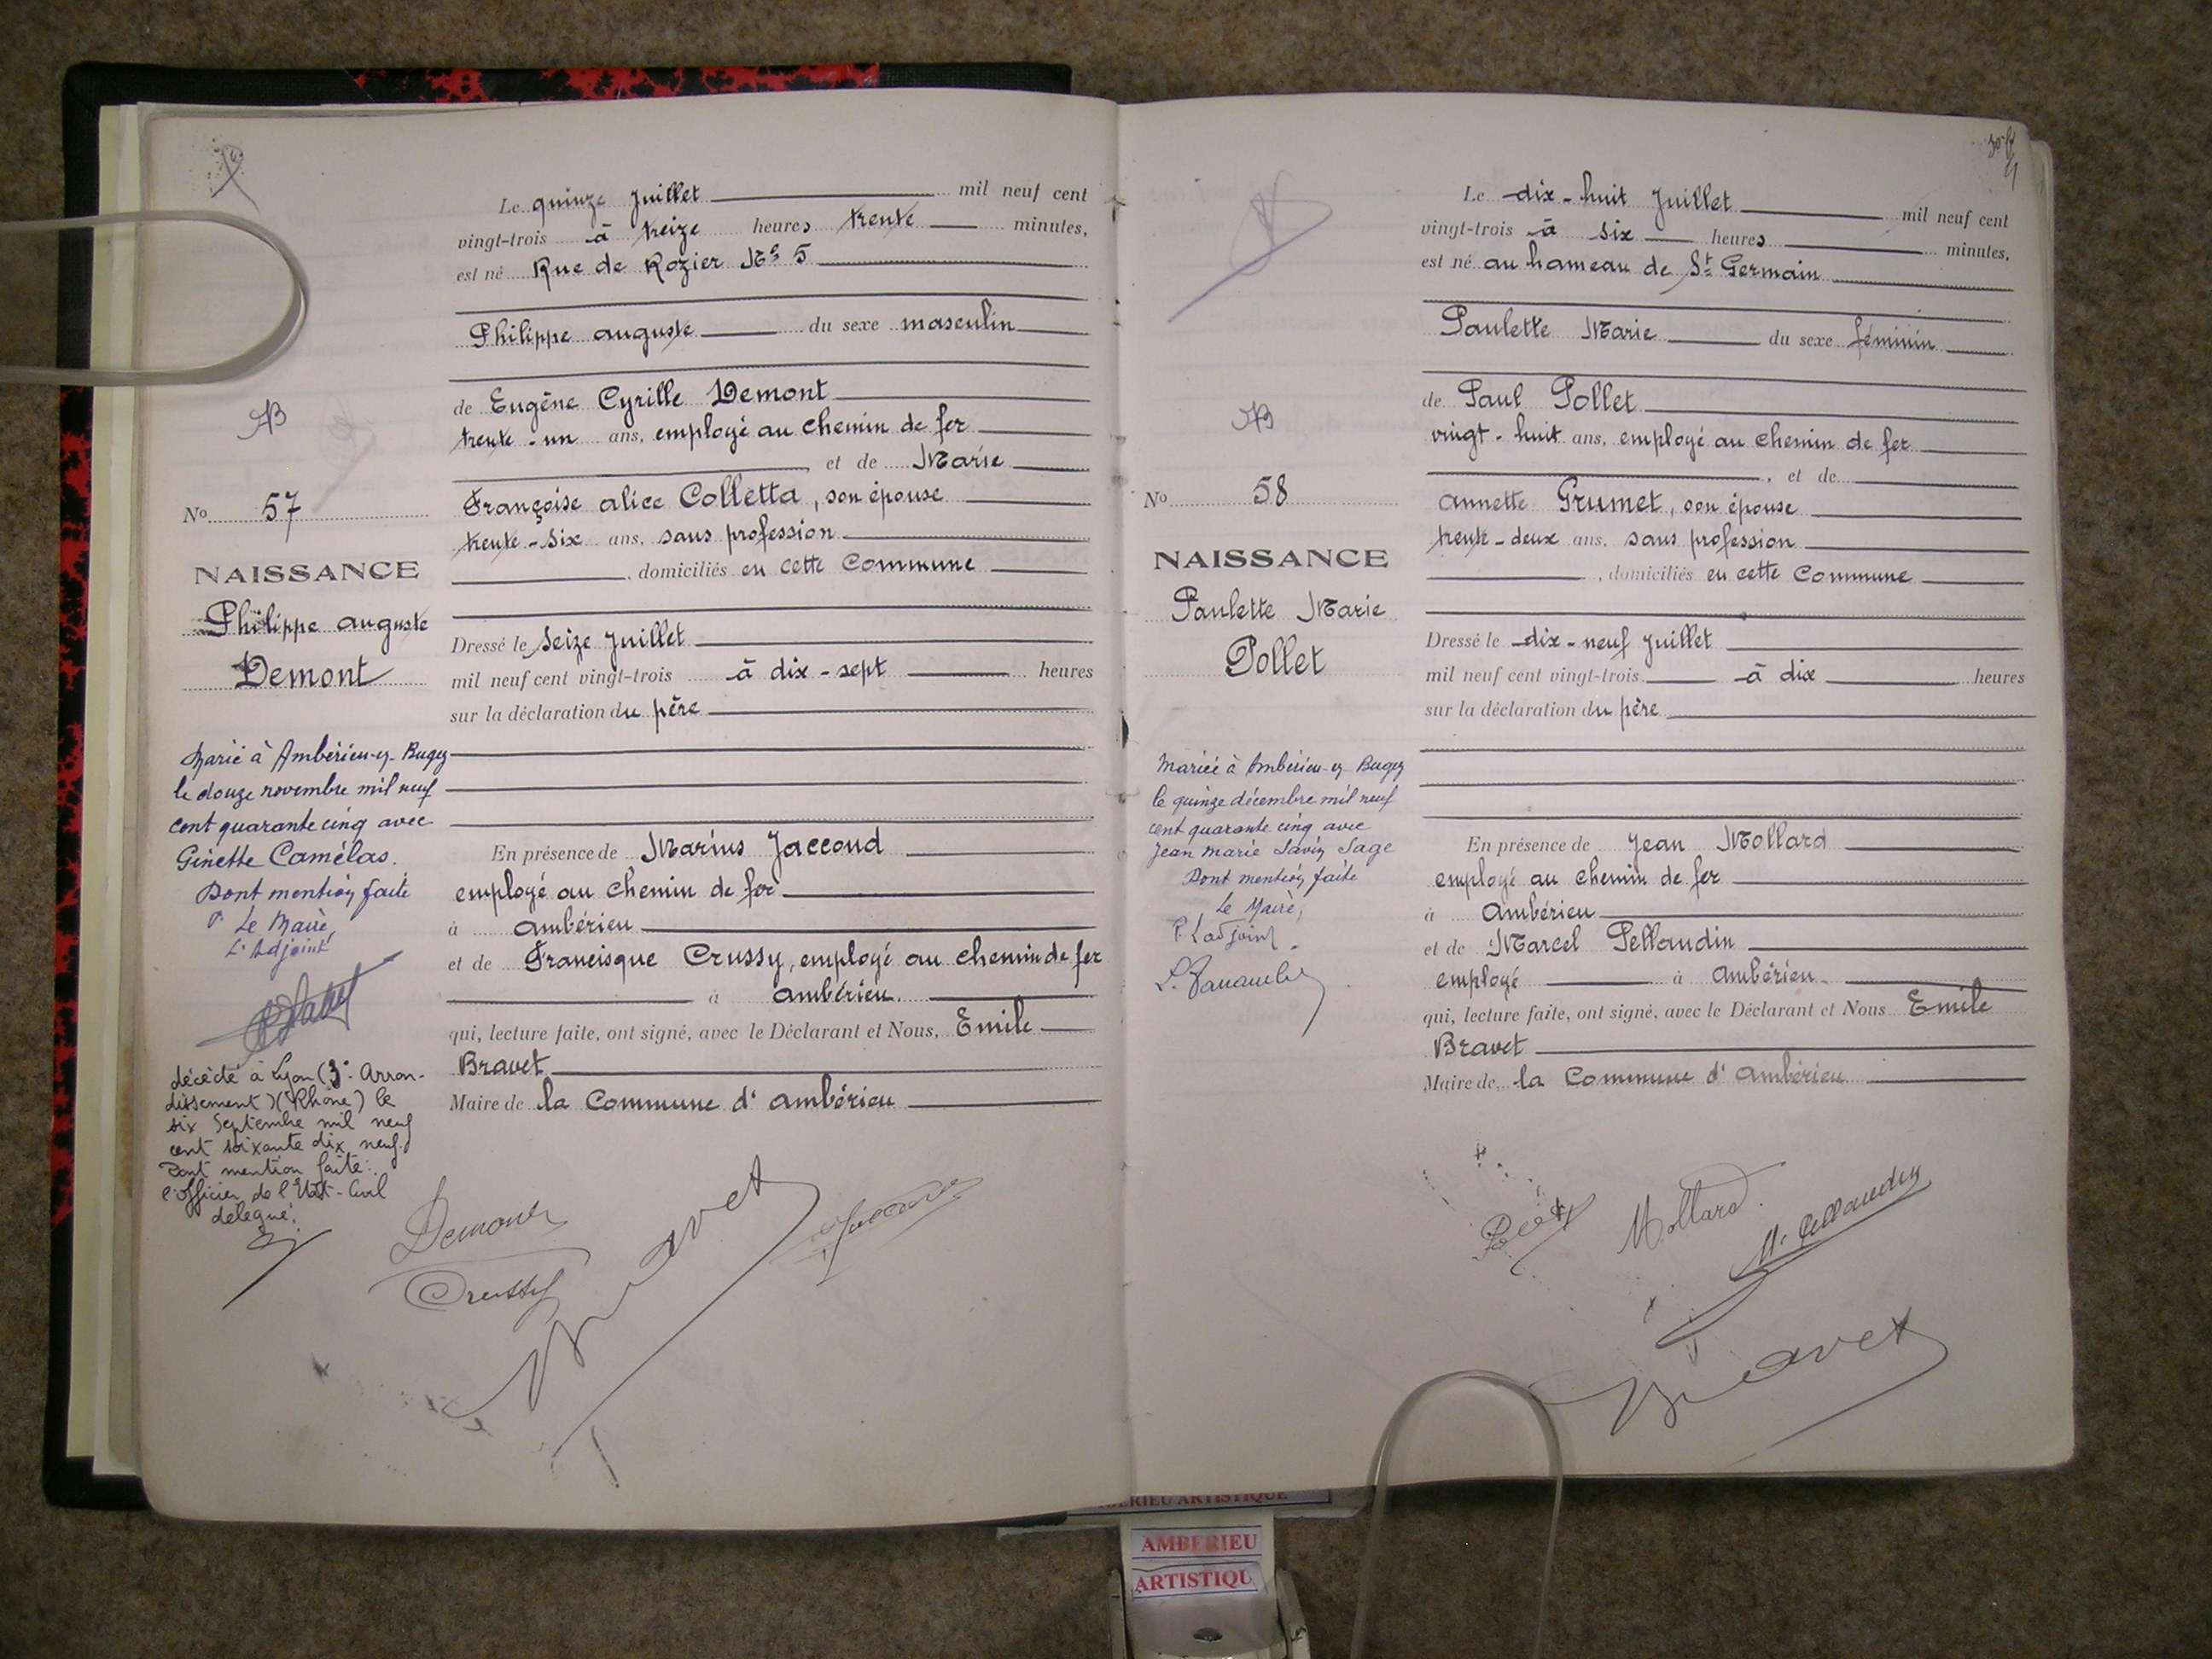 Le quinze Juillet mil neuf cent
vingt-trois à treize heures trente minutes,
est né Rue de Rozier No 5
Philippe auguste du sexe masculin
de Eugène Cyrille Demont
trente-un ans, employé au chemin de fer
, et de Marie
Françoise alice Colletta, son épouse
trente-six ans, sans profession
, domiciliés en cette Commune
Dressé le seize Juillet
mil neuf cent vingt-trois à dix-sept heures
sur la déclaration du père
En présence de Marius Jaccoud
employé au chemin de fer
à ambérieu
et de Francisque Crussy, employé au chemin de fer
à ambérieu.
qui, lecture faite, ont signé, avec le Déclarant et Nous, Emile
Bravet
Maire de la Commune d'ambérieu
No 57
NAISSANCE
Philippe auguste
Demont
Marié à Ambérieu-en-Bugey
le douze novembre mil neuf
cent quarante cinq avec
Ginette Camélas.
Dont mention faite
P. Le Maire,
L'Adjoint
décédé à Lyon (3e Arron-
dissement) (Rhône) le
six Septembre mil neuf
cent soixante dix neuf.
Dont mention faite.
l'officier de l'Etat-Civil
délégué.
Demont
Crussy
Bravet
Jaccoud
Le dix-huit Juillet mil neuf cent
vingt-trois à six heures minutes,
est né au hameau de St Germain
Paulette Marie du sexe féminin
de Paul Pollet
vingt-huit ans, employé au chemin de fer
, et de
annette Grumet, son épouse
trente-deux ans, sans profession
, domiciliés en cette Commune
Dressé le dix-neuf Juillet
mil neuf cent vingt-trois à dix heures
sur la déclaration du père
En présence de Jean Mollard
employé au chemin de fer
à ambérieu
et de Marcel Pellaudin
employé à ambérieu
qui, lecture faite, ont signé, avec le Déclarant et Nous Emile
Bravet
Maire de la Commune d'ambérieu
No 58
NAISSANCE
Paulette Marie
Pollet
Mariée à Ambérieu-en-Bugey
le quinze décembre mil neuf
cent quarante cinq avec
Jean Marie Savin Sage
Dont mention faite
Le Maire,
P. L'adjoint.
Mollard
M. Pellaudin
Bravet
AMBERIEU ARTISTIQUE
AMBERIEU
ARTISTIQU